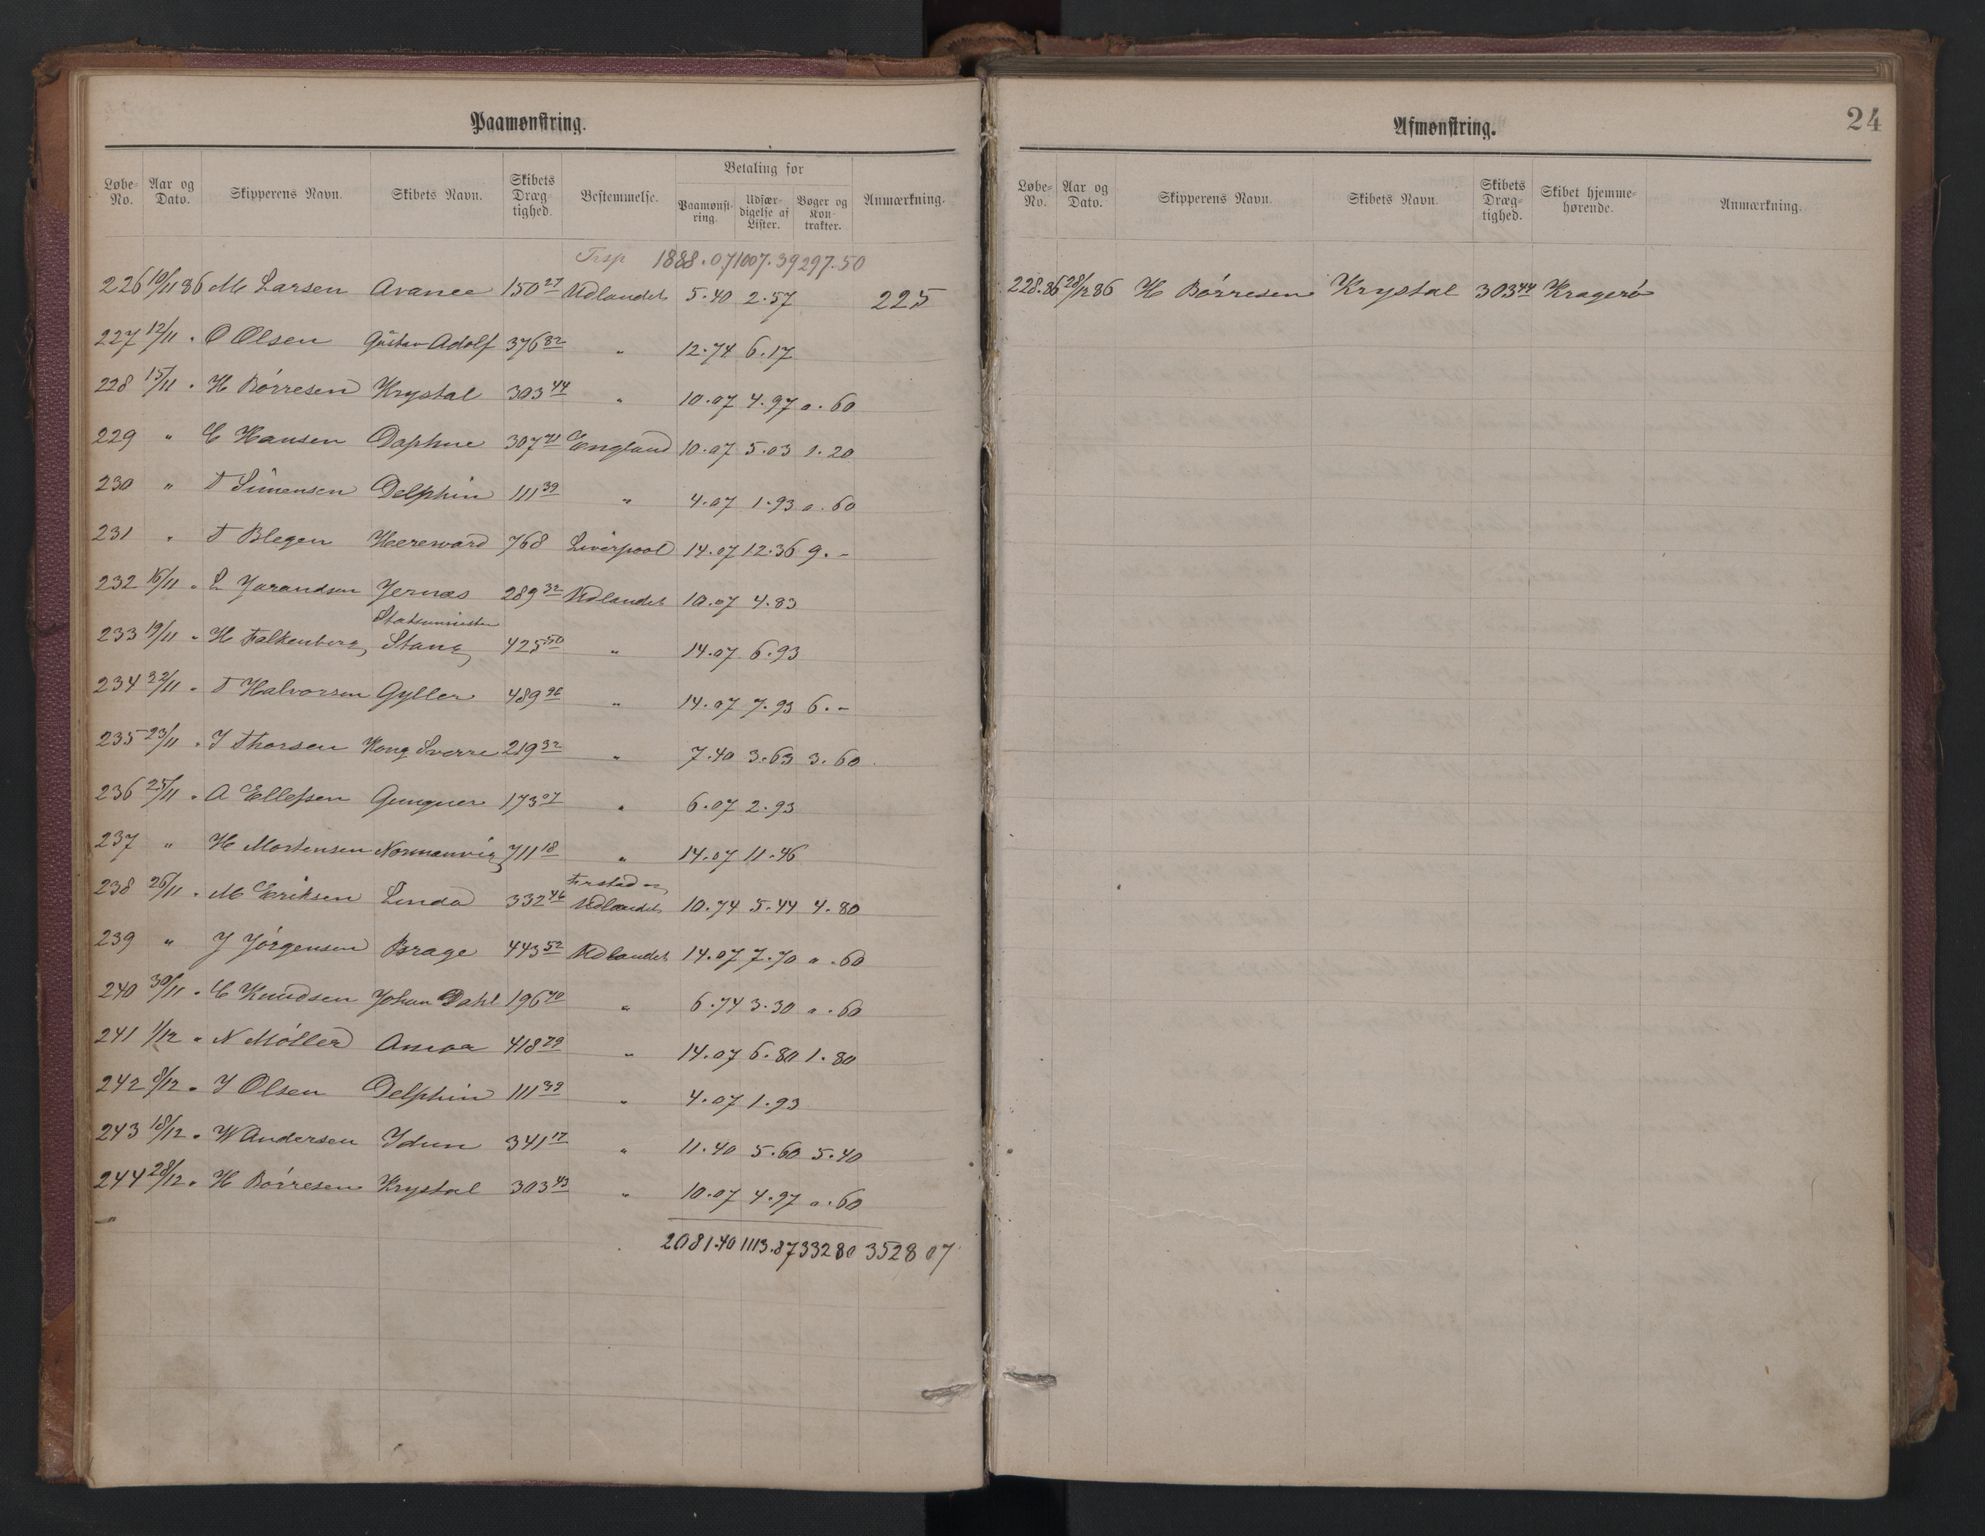 Paamønstring.
Løbe-No. Aar og Dato. Skipperens Navn. Skibets Navn. Skibets Dræg-tighed. Bestemmelse. Betaling for Paamønst-ring. Udfær-digelse af Lister. Bøger og Kon-trakter. Anmærkning.
Trsp 1888.07 1007.39 297.50
226 10/11 86 M Larsen Avance 150 27 Udlandet 5.40 2.57 225
227 12/11 " O Olsen Gustav Adolf 376 82 " 12.74 6.17
228 15/11 " H Børresen Krystal 303 44 " 10.07 4.97 0.60
229 " C Hansen Daphne 307 71 England 10.07 5.03 1.20
230 " T Simensen Delphin 111 39 " 4.07 1.93 0.60
231 " T Blegen Hereward 768 Liverpool 14.07 12.36 9.-
232 16/11 " L Jorandsen Jernæs 289 32 Udlandet 10.07 4.83
233 19/11 " H Falkenberg Statsminister Stang 425 50 " 14.07 6.93
234 22/11 " T Halvorsen Gyller 489 96 " 14.07 7.93 6.-
235 23/11 " J Thorsen Kong Sverre 219 32 " 7.40 3.63 3.60
236 25/11 " A Ellefsen Gungner 173 07 " 6.07 2.93
237 " H Mortensen Normanvig 711 18 " 14.07 11.46
238 26/11 " M Eriksen Linda 332 46 Udlandet 10.74 5.44 4.80
239 " J Jørgensen Brage 443 52 Udlandet 14.07 7.70 0.60
240 30/11 " C Knudsen Johan Dahl 196 40 " 6.74 3.30 0.60
241 1/12 " N Møller 418 79 " 14.07 6.80 1.80
242 8/12 " J Olsen Delphin 111 39 " 4.07 1.93
243 18/12 " W Andersen Idun 341 17 " 11.40 5.60 5.40
244 28/12 " H Børresen Krystal 303 43 " 10.07 4.97 0.60
2081.40 1113.87 332 80 3528 07
24
Afmønstring.
Løbe-No. Aar og Dato. Skipperens Navn. Skibets Navn. Skibets Dræg-tighed. Skibet hjemme-hørende. Anmærkning.
228.86 28/12 86 H Børresen Krystal 303 44 Kragerø